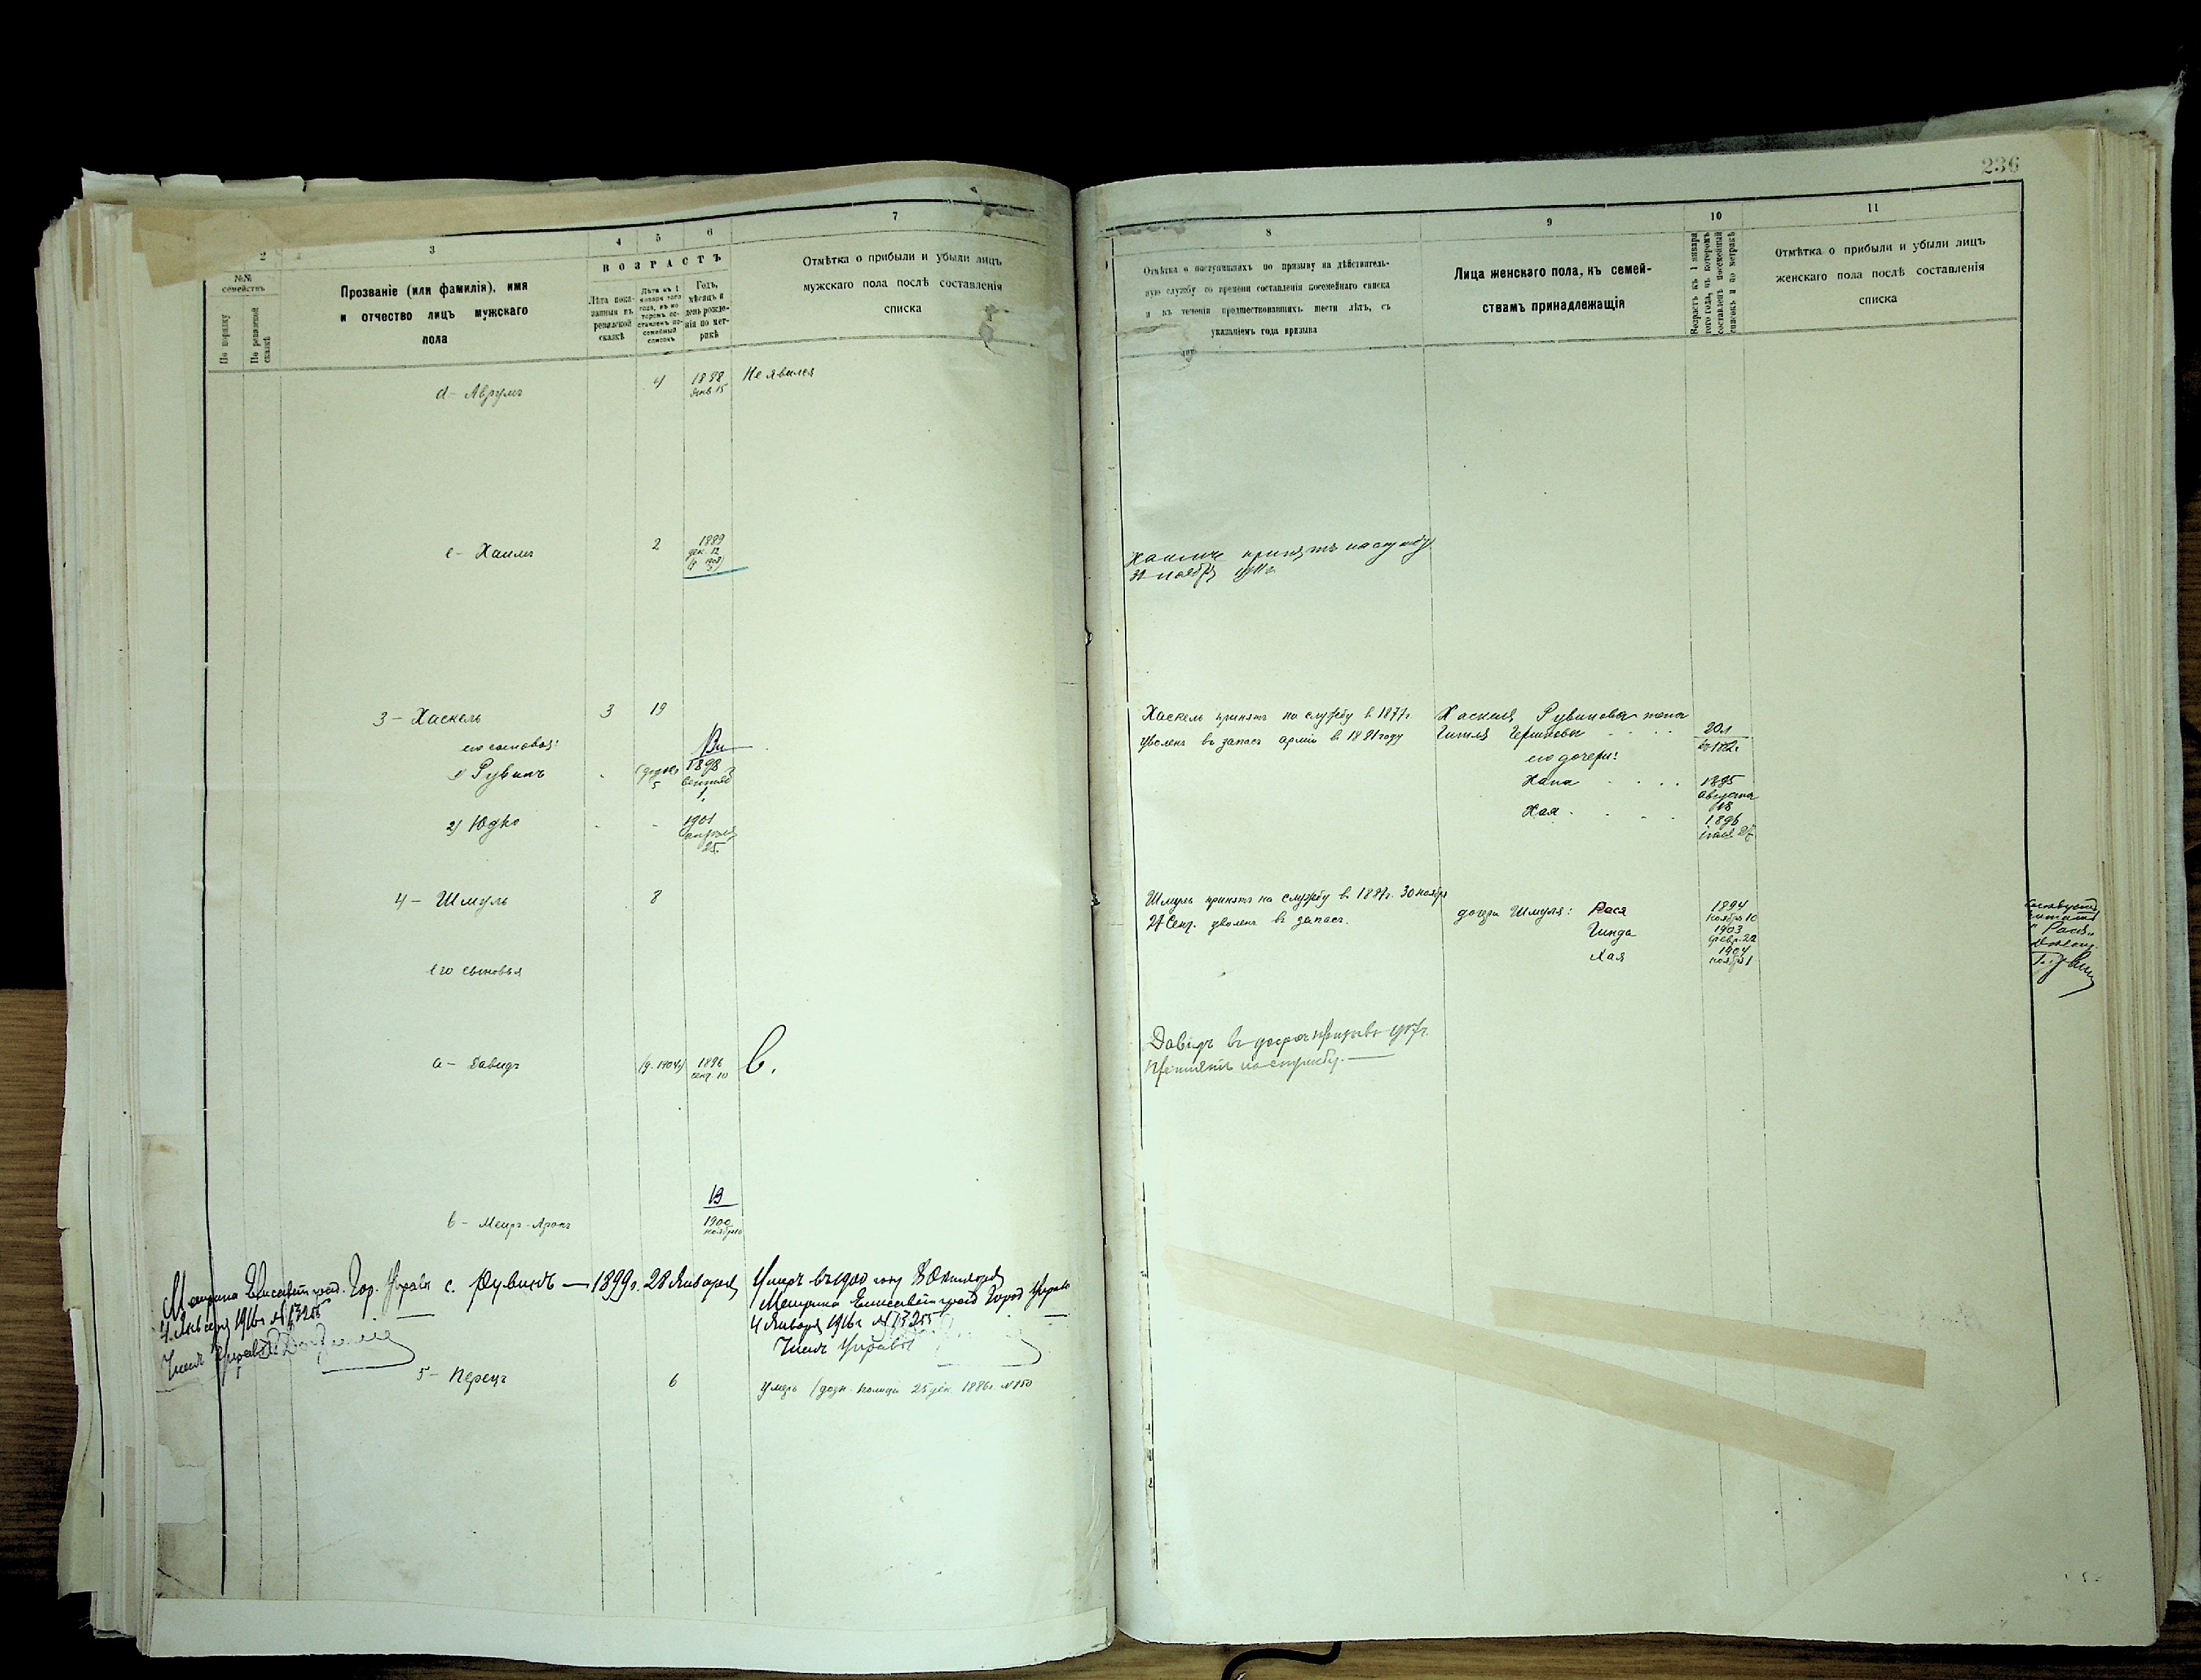 236
2
3
4
5
6
7
№№ семействъ
По порядку
По ревизской сказкѣ
Прозваніе (или фамилія), имя
и отчество лицъ мужскаго
пола
ВОЗРАСТЪ
Лѣта пока-
занныя въ
ревизской
сказкѣ
Лѣта къ 1
января того
года, въ ко-
торомъ со-
ставленъ по-
семейный
списокъ
Годъ,
мѣсяцъ и
день рожде-
нія по мет-
рикѣ
Отмѣтка о прибыли и убыли лицъ
мужскаго пола послѣ составленія
списка
d- Аврумъ
4
Не явился
е- Хаимъ
2
1889
дек. 12
3- Хаскель
3
19
его сыновья:
1) Рувинъ
1898
5
1
2) Юдко
1901
апрѣля
25.
4- Шмуль
8
его сыновья
а- Давидъ
1896
сент. 10
в.
13
в- Меиръ-Аронъ
1900
ноября
Метрика Елисаветград. Гор. Управы с. Рувинъ — 1899 г. 28 Января
4 Января 1916 г. № 13255
Членъ Управы
Умеръ въ 1900 году 8 Октября
Метрика Елисаветград Город Управы
4 Января 1916 г. № 13255
Членъ Управы
5- Перецъ
6
умеръ (дозн. полиціи 25 дек. 1886 г. № 850
8
9
10
11
Отмѣтка о поступившихъ по призыву на дѣйствитель-
ную службу со времени составленія посемейнаго списка
и въ теченіи предшествовавшихъ шести лѣтъ, съ
указаніемъ года призыва
Лица женскаго пола, къ семей-
ствамъ принадлежащія
Возрастъ къ 1 января
того года, въ которомъ
составленъ посемейный
списокъ и по метрикѣ
Отмѣтка о прибыли и убыли лицъ
женскаго пола послѣ составленія
списка
Хаимъ принятъ на службу
ноября 1911 г.
Хаскель принятъ на службу в 1877 г.
уволенъ въ запасъ арміи в 1881 году
Хаскеля Рувинова жена
20 л
его дочери:
Хана
1895
августа
18
Хая
1896
Шмуль принятъ на службу в 1887 г. 30 ноября
27 Сент. уволенъ в запасъ.
дочери Шмуля: Рася
1894
ноября 10
Гинда
1903
февр. 22
Хая
1904
ноября 1
Давидъ в досроч. призывъ 1917 г.
принятъ на службу. —